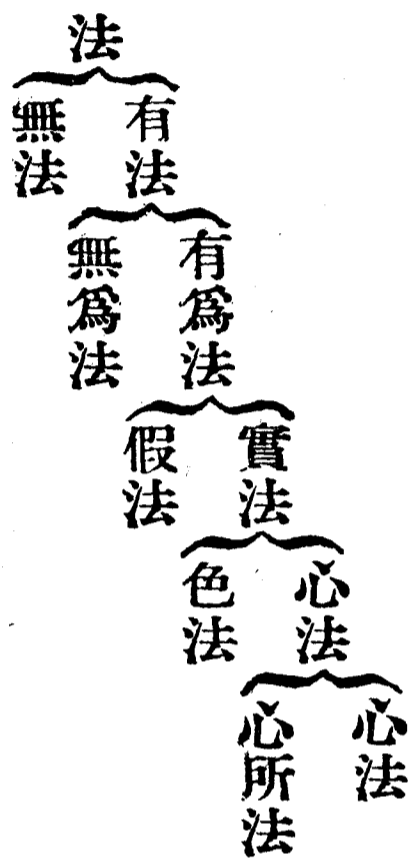 法
有法
無法
有爲法
無爲法
實法
假法
心法
色法
心法
心所法